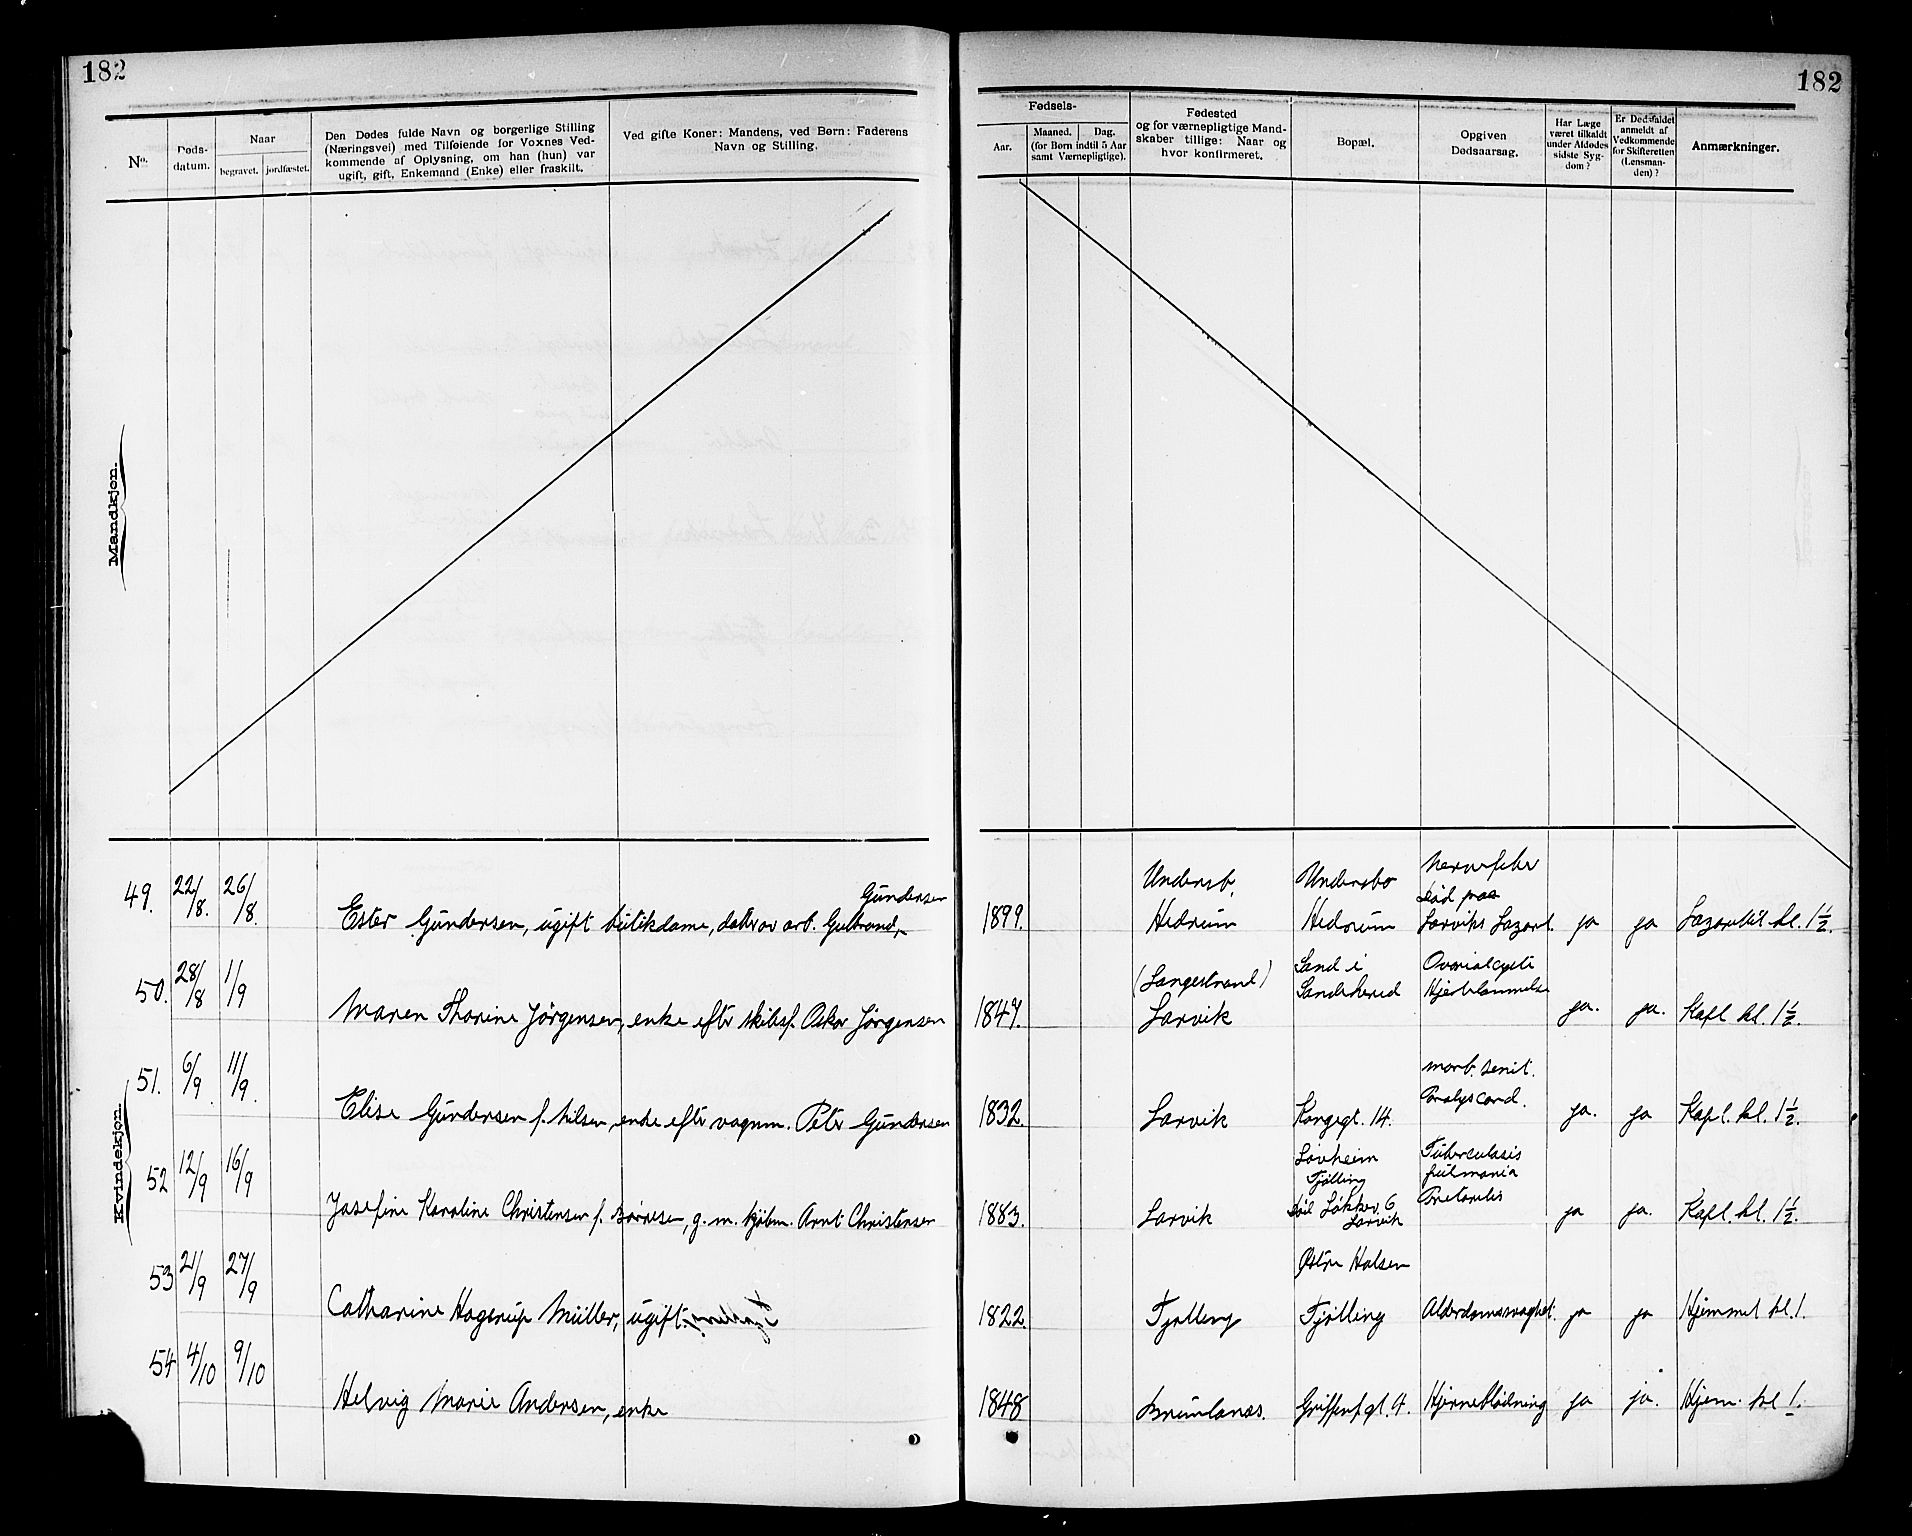 182
182
No.
Døds-
datum.
Naar
begravet.
jordfæstet.
Den Dødes fulde Navn og borgerlige Stilling
(Næringsvei) med Tilføiende for Voxnes Ved-
kommende af Oplysning, om han (hun) var
ugift, gift, Enkemand (Enke) eller fraskilt.
Ved gifte Koner: Mandens, ved Børn: Faderens
Navn og Stilling.
Fødsels-
Aar.
Maaned. Dag.
(for Børn indtil 5 Aar
samt Værnepligtige).
Fødested
og for værnepligtige Mand-
skaber tillige: Naar og
hvor konfirmeret.
Bopæl.
Opgiven
Dødsaarsag.
Har Læge
været tilkaldt
under Afdødes
sidste Syg-
dom?
Er Dødsfaldet
anmeldt af
Vedkommende
for Skifteretten
(Lensman-
den)?
Anmærkninger.
Mandkjøn.
Kvindekjøn.
49. 22/8. 26/8. Ester Gundersen, ugift butikdame, datter av arb. Gulbrand Gundersen 1899. Undersb. Hedrum Undersbo Hedrum Nervefeber død paa Larviks Lazaret. ja ja Lazarettet kl. 1½.
50. 28/8 1/9 Maren Thorine Jørgensen, enke efter skibsf. Oskar Jørgensen 1847. (Langestrand) Larvik Sand i Sandeherred Ovarialcyste Hjertelammelse ja. ja. Kapl. kl. 1½.
51. 6/9. 11/9. Elise Gundersen f. Nilsen, enke efter vognm. Peter Gundersen 1832. Larvik Kongegt. 14. morb. senit. Paralys cord. ja. ja Kapl. kl. 1½.
52 12/9 16/9 Josefine Karoline Christensen f. Børresen, g. m. kjøbm. Arnt Christensen 1883. Larvik Løvheim Tjølling død Løkkev. 6 Larvik Tuberculosis pulmonia ja ja. Kapl. kl. 1½.
53 21/9 27/9 Catharine Hagerup Müller, ugift 1822. Tjølling Østre Halsen Tjølling Alderdomssvaghet. ja ja Hjemmet kl. 1.
54 4/10 9/10 Helvig Marie Andersen, enke 1848 Brunlanes. Griffenf. gt. 4. Hjerneblødning ja ja. Hjem. kl 1.